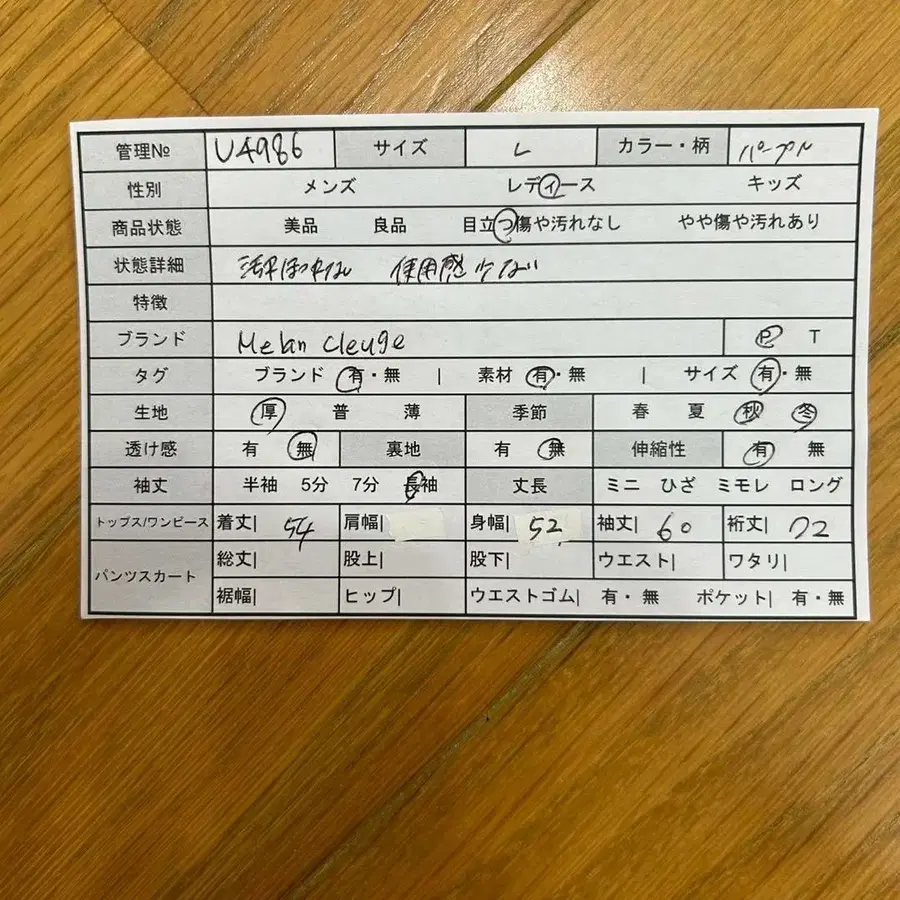 管理№ U4986 サイズ L カラー・柄 パープル
性別 メンズ レディース キッズ
商品状態 美品 良品 目立つ傷や汚れなし やや傷や汚れあり
状態詳細 使用感少ない
特徴
ブランド Melan Cleuge P T
タグ ブランド 有・無 | 素材 有・無 | サイズ 有・無
生地 厚 普 薄 季節 春 夏 秋 冬
透け感 有 無 裏地 有 無 伸縮性 有 無
袖丈 半袖 5分 7分 長袖 丈長 ミニ ひざ ミモレ ロング
トップス/ワンピース 着丈| 54 肩幅| 身幅| 52 袖丈| 60 裄丈| 72
パンツスカート 総丈| 股上| 股下| ウエスト| ワタリ|
裾幅| ヒップ| ウエストゴム| 有・無 ポケット| 有・無